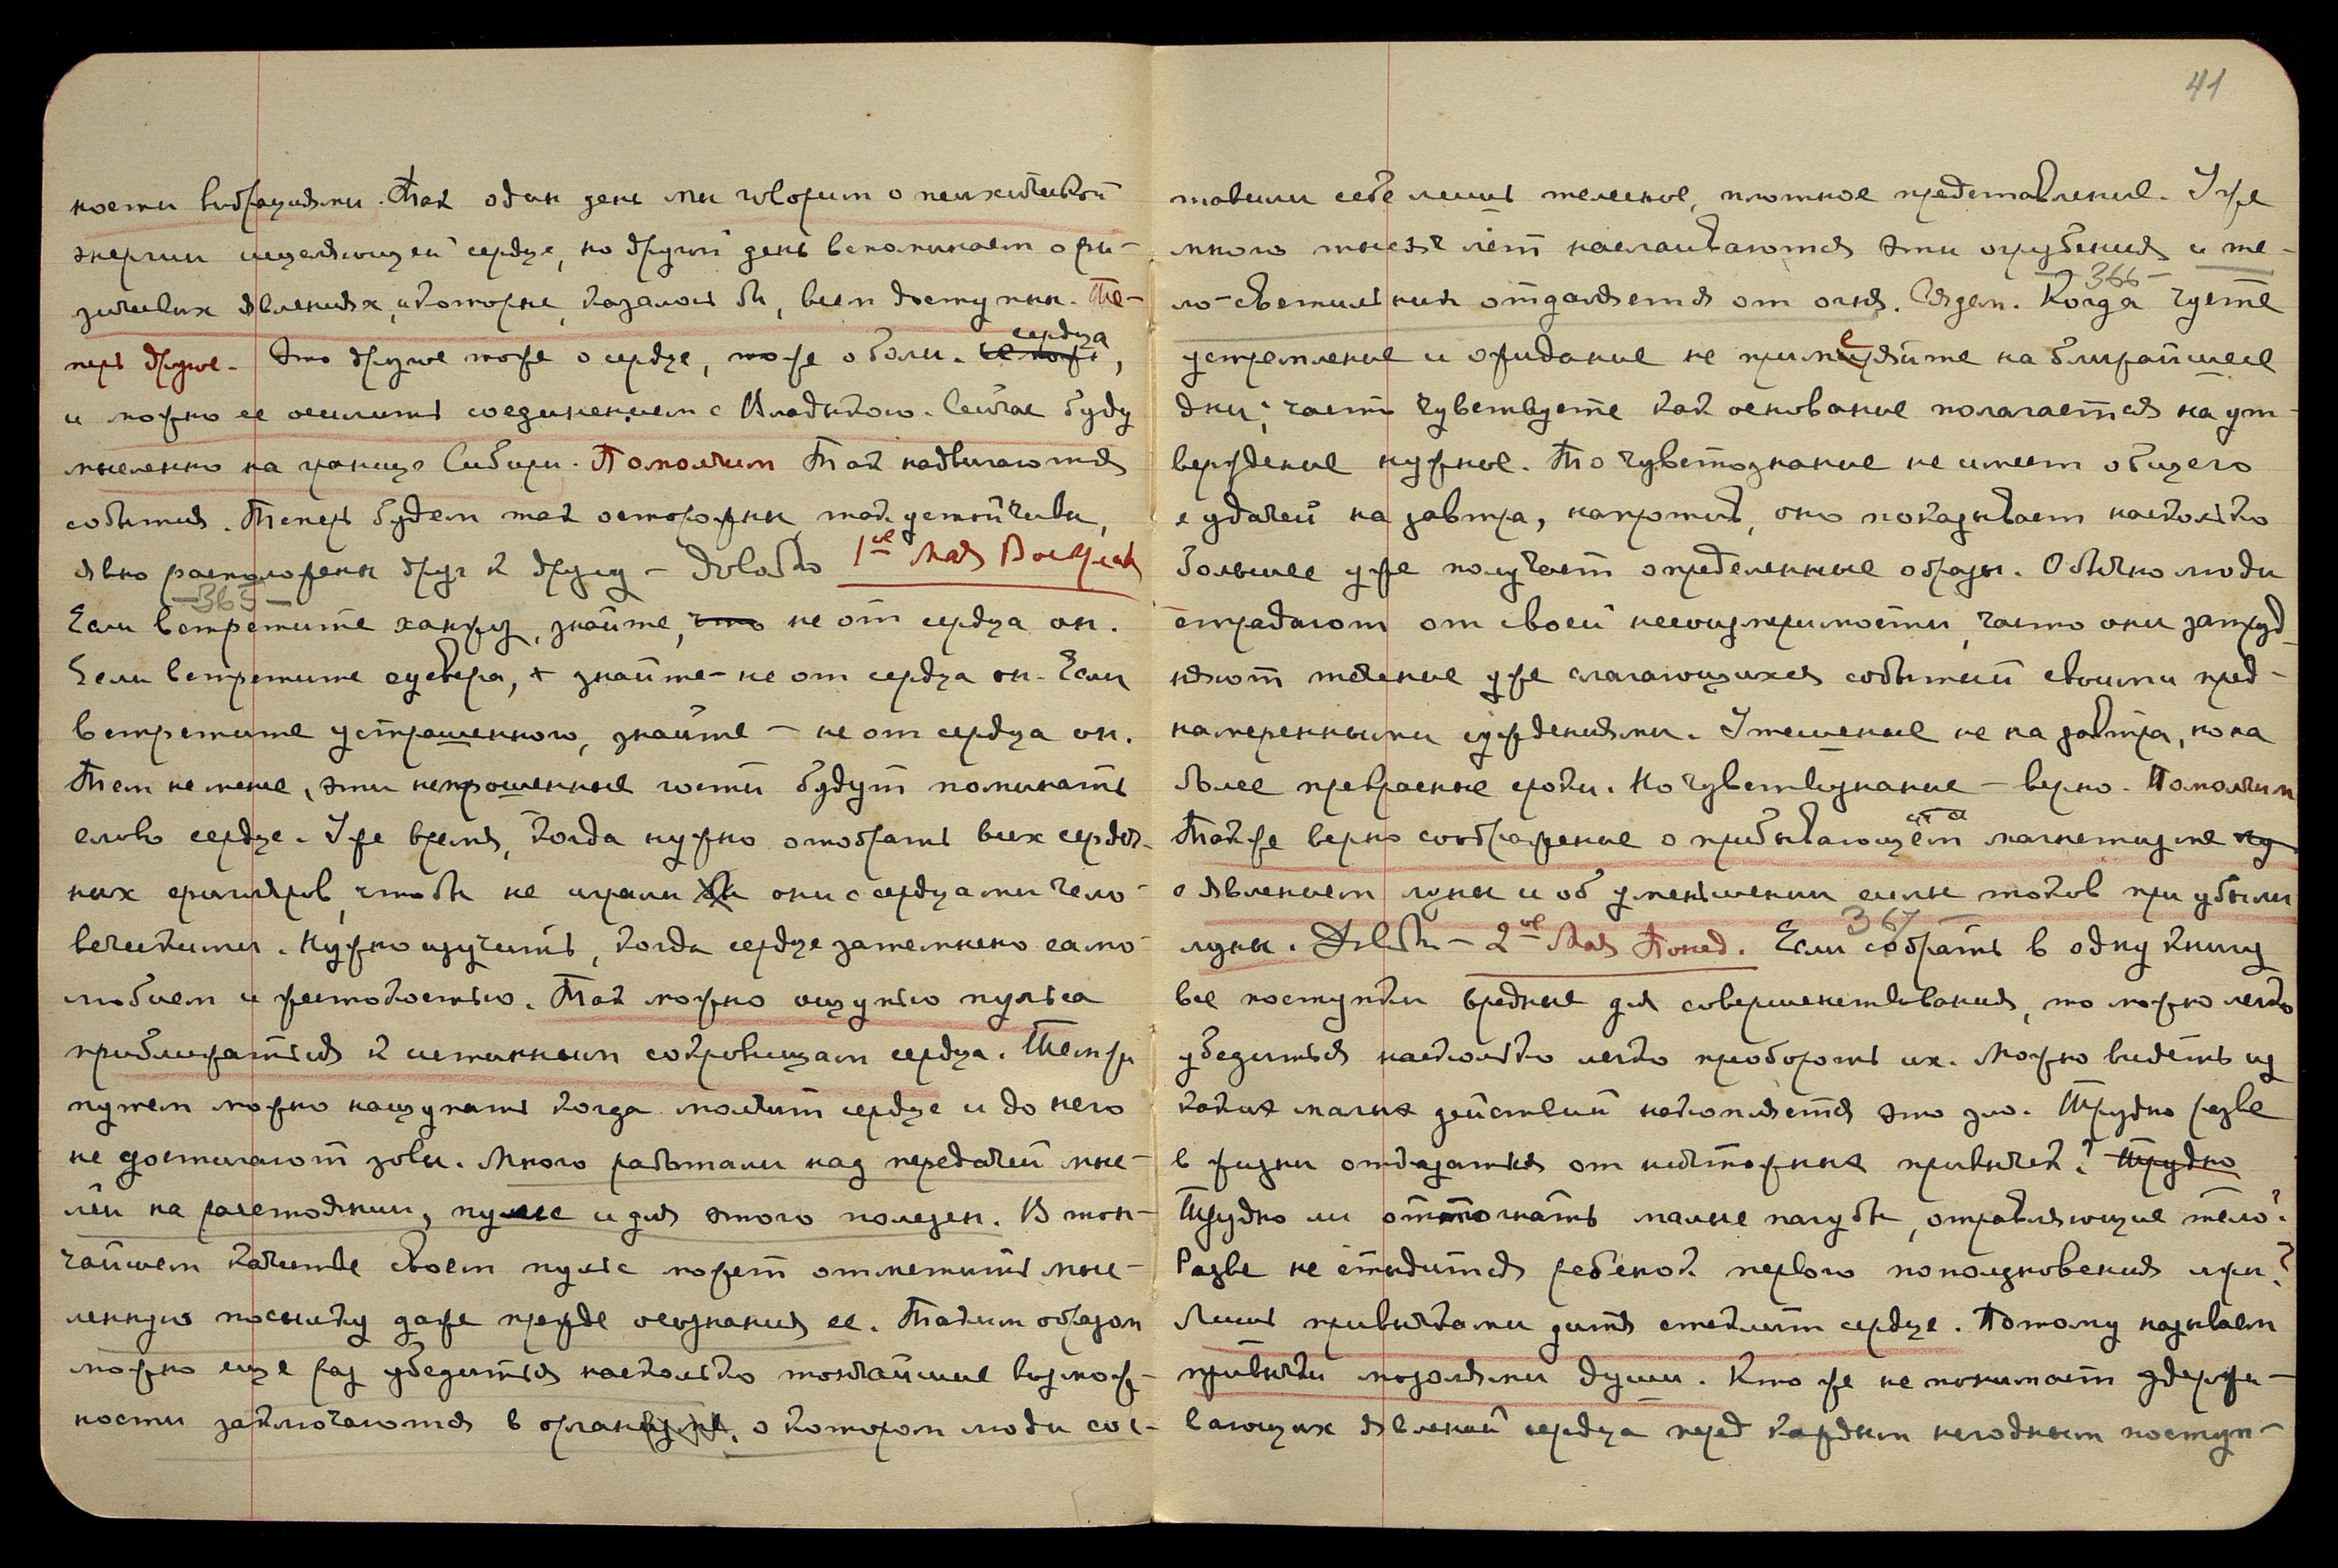 ности вибрациями. Так один день мы говорим о психической
энергии исцеляющей сердце, но другой день вспоминаем о фи-
зических явлениях, которые, казалось бы, всем доступны. Те-
перь другое. Это другое тоже о сердце, тоже о боли. сердца,
и можно ее осилить соединением с Владыкою. Сейчас буду
мысленно на границе Сибири. Помолчим Так надвигаются
события. Теперь будем так осторожны так устойчивы,
явно расположены друг к другу – Довольно 1ое Мая Воскрес
—365—
Если встретите ханжу, знайте, что не от сердца он.
Если встретите суевера, знайте – не от сердца он. Если
встретите устрашенного, знайте – не от сердца он.
Тем не менее, эти непрошенные гости будут поминать
слово сердце. Уже время, когда нужно отобрать всех сердеч-
ных фигляров, чтобы не играли бы они с сердцами чело-
веческими. Нужно изучить, когда сердце затемнено само-
любием и жестокостью. Так можно ощупью пульса
приближаться к истинным сокровищам сердца. Тем же
путем можно нащупать когда молчит сердце и до него
не достигают зовы. Много работали над передачей мыс-
лей на расстоянии, пульс и для этого полезен. В тон-
чайшем качестве своем пульс может отметить мыс-
ленную посылку даже прежде осознания ее. Таким образом
можно еще раз убедиться насколько тончайшие возмож-
ности заключаются в организме, о котором люди сос-
41
тавили себе лишь телесное, плотное представление. Уже
много тысяч лет наслаиваются эти огрубения и те-
—366—
ло-светильник отдаляется от огня. Сядем. Когда чуете
устремление и ожидание не примеряйте на ближайшее
дни; часто чувствуете как основание полагается на ут-
верждение нужное. То чувствознание не имеет общего
с удачей на завтра, напротив, оно показывает насколько
большее уже получает определенные образы. Обычно люди
страдают от своей несоизмеримости, часто они затруд-
няют течение уже слагающихся событий своими пред-
намеренными суждениями. Утешение не на завтра, но на
более прекрасные сроки. Но чувствознание – верно. Помолчим
Также верно соображение о прибывающем магнетизме
с явлением луны и об уменьшении силы токов при убыли
367
луны. Довольно – 2ое Мая Понед. Если собрать в одну книгу
все поступки вредные для совершенствования, то можно легко
убедиться насколько легко побороть их. Можно видеть из
каких малых действий накопляется это зло. Трудно разве
в жизни отвязаться от ничтожных привычек? Трудно
Трудно ли отогнать малые пагубы, отравляющие тело?
Разве не стыдится ребенок первого поползновения лжи?
Лишь привычками дитя стеклит сердце. Потому называем
привычки мозолями души. Кто же не понимает удержи-
вающих явлений сердца перед каждым негодным поступ-